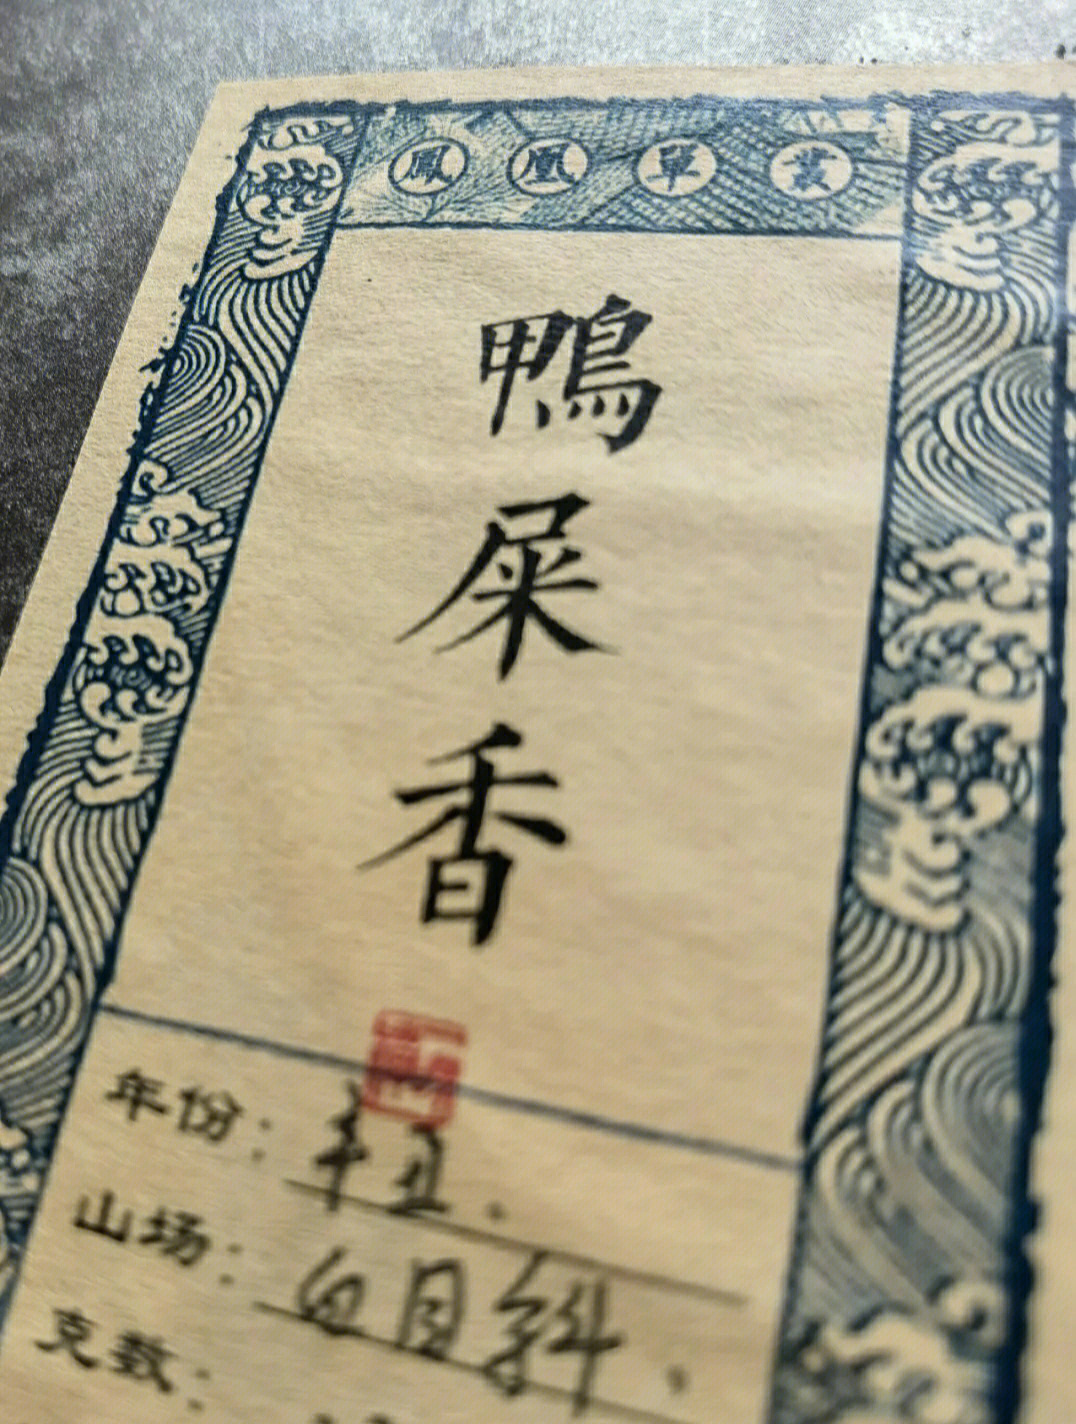 鳳凰單叢
鴨屎香
年份：辛丑.
山场：白目斜.
克数：